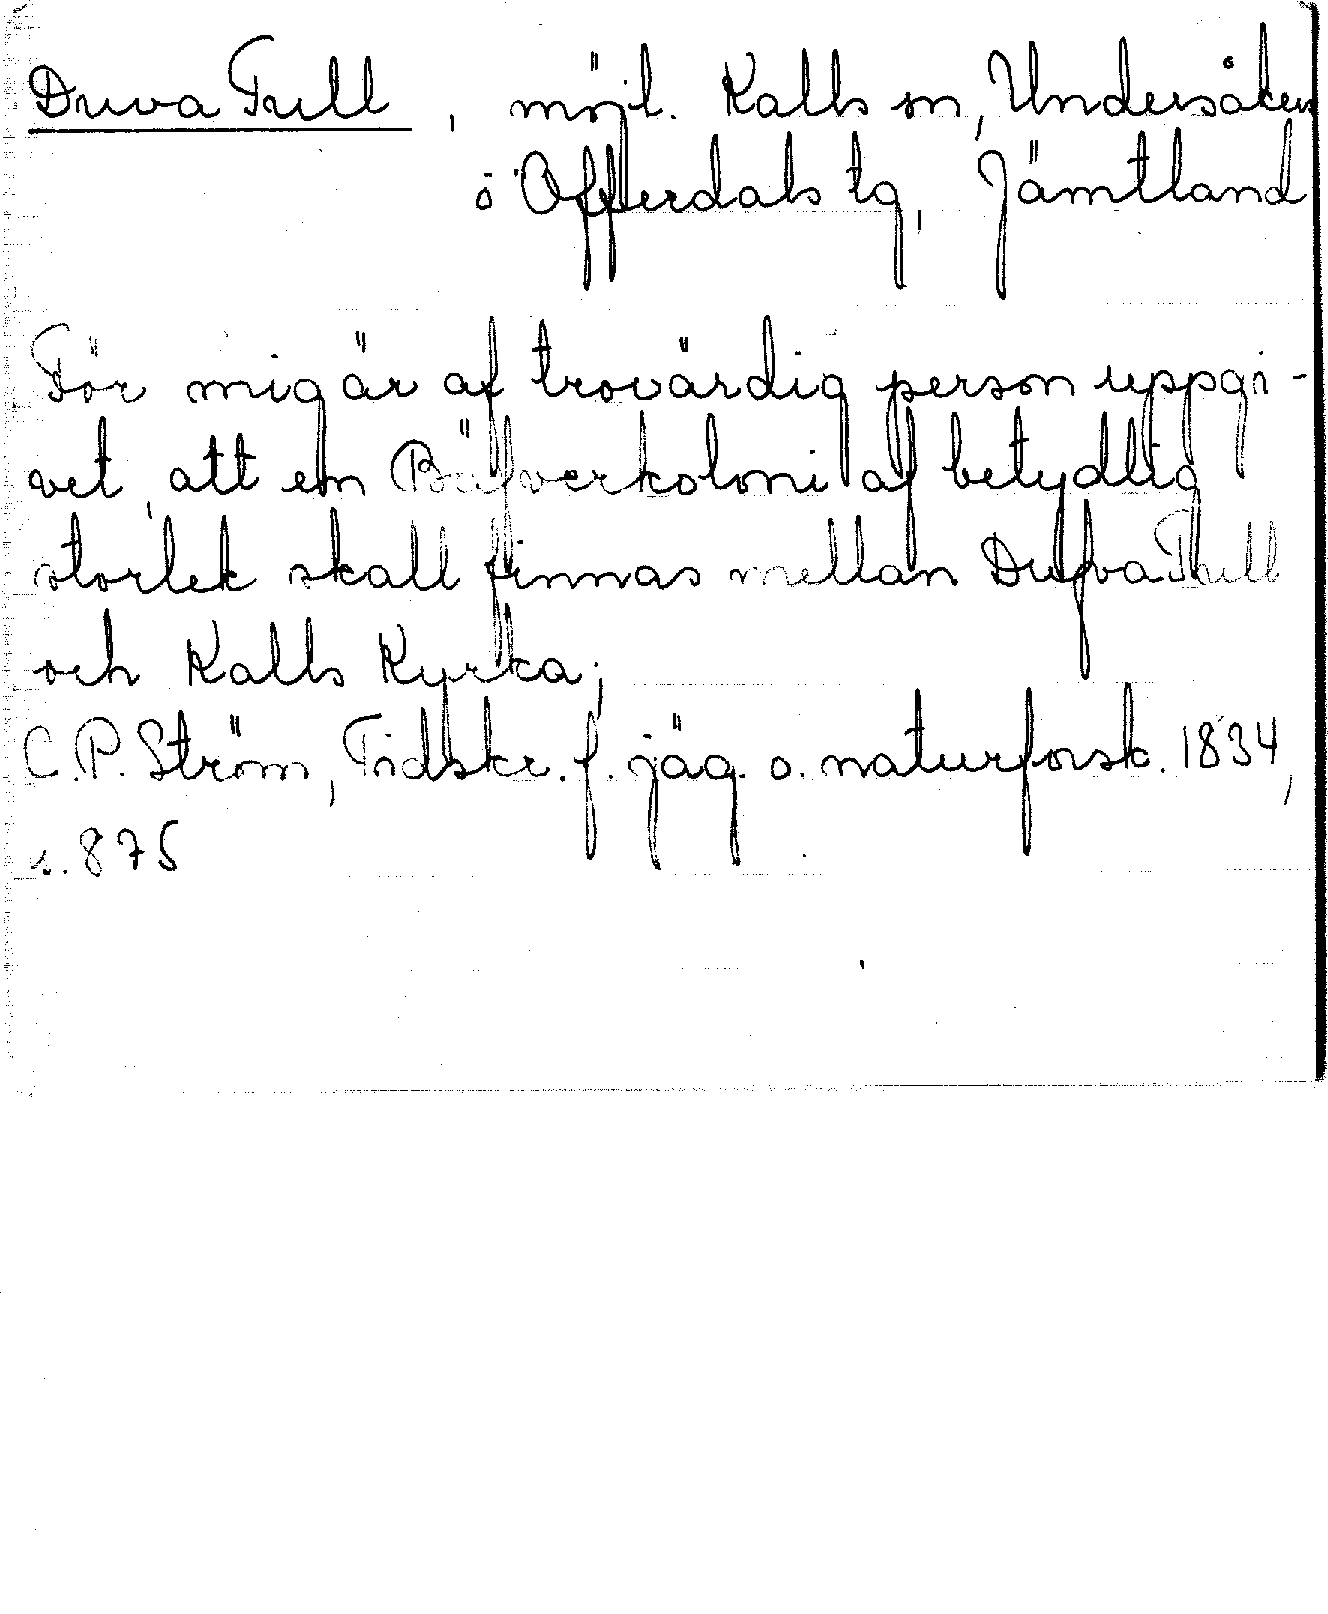 Duva Tull, möjl. Kalls sn, Undersåkers
o Offerdals tg, Jämtland
För mig är af trovärdig person uppgi-
vet, att en Bäfverkoloni af betydlig
storlek skall finnas mellan Dufva Tull
och Kalls Kyrka;
C.P. Ström, Tidskr. f. jäg. o. naturforsk. 1834,
s. 875